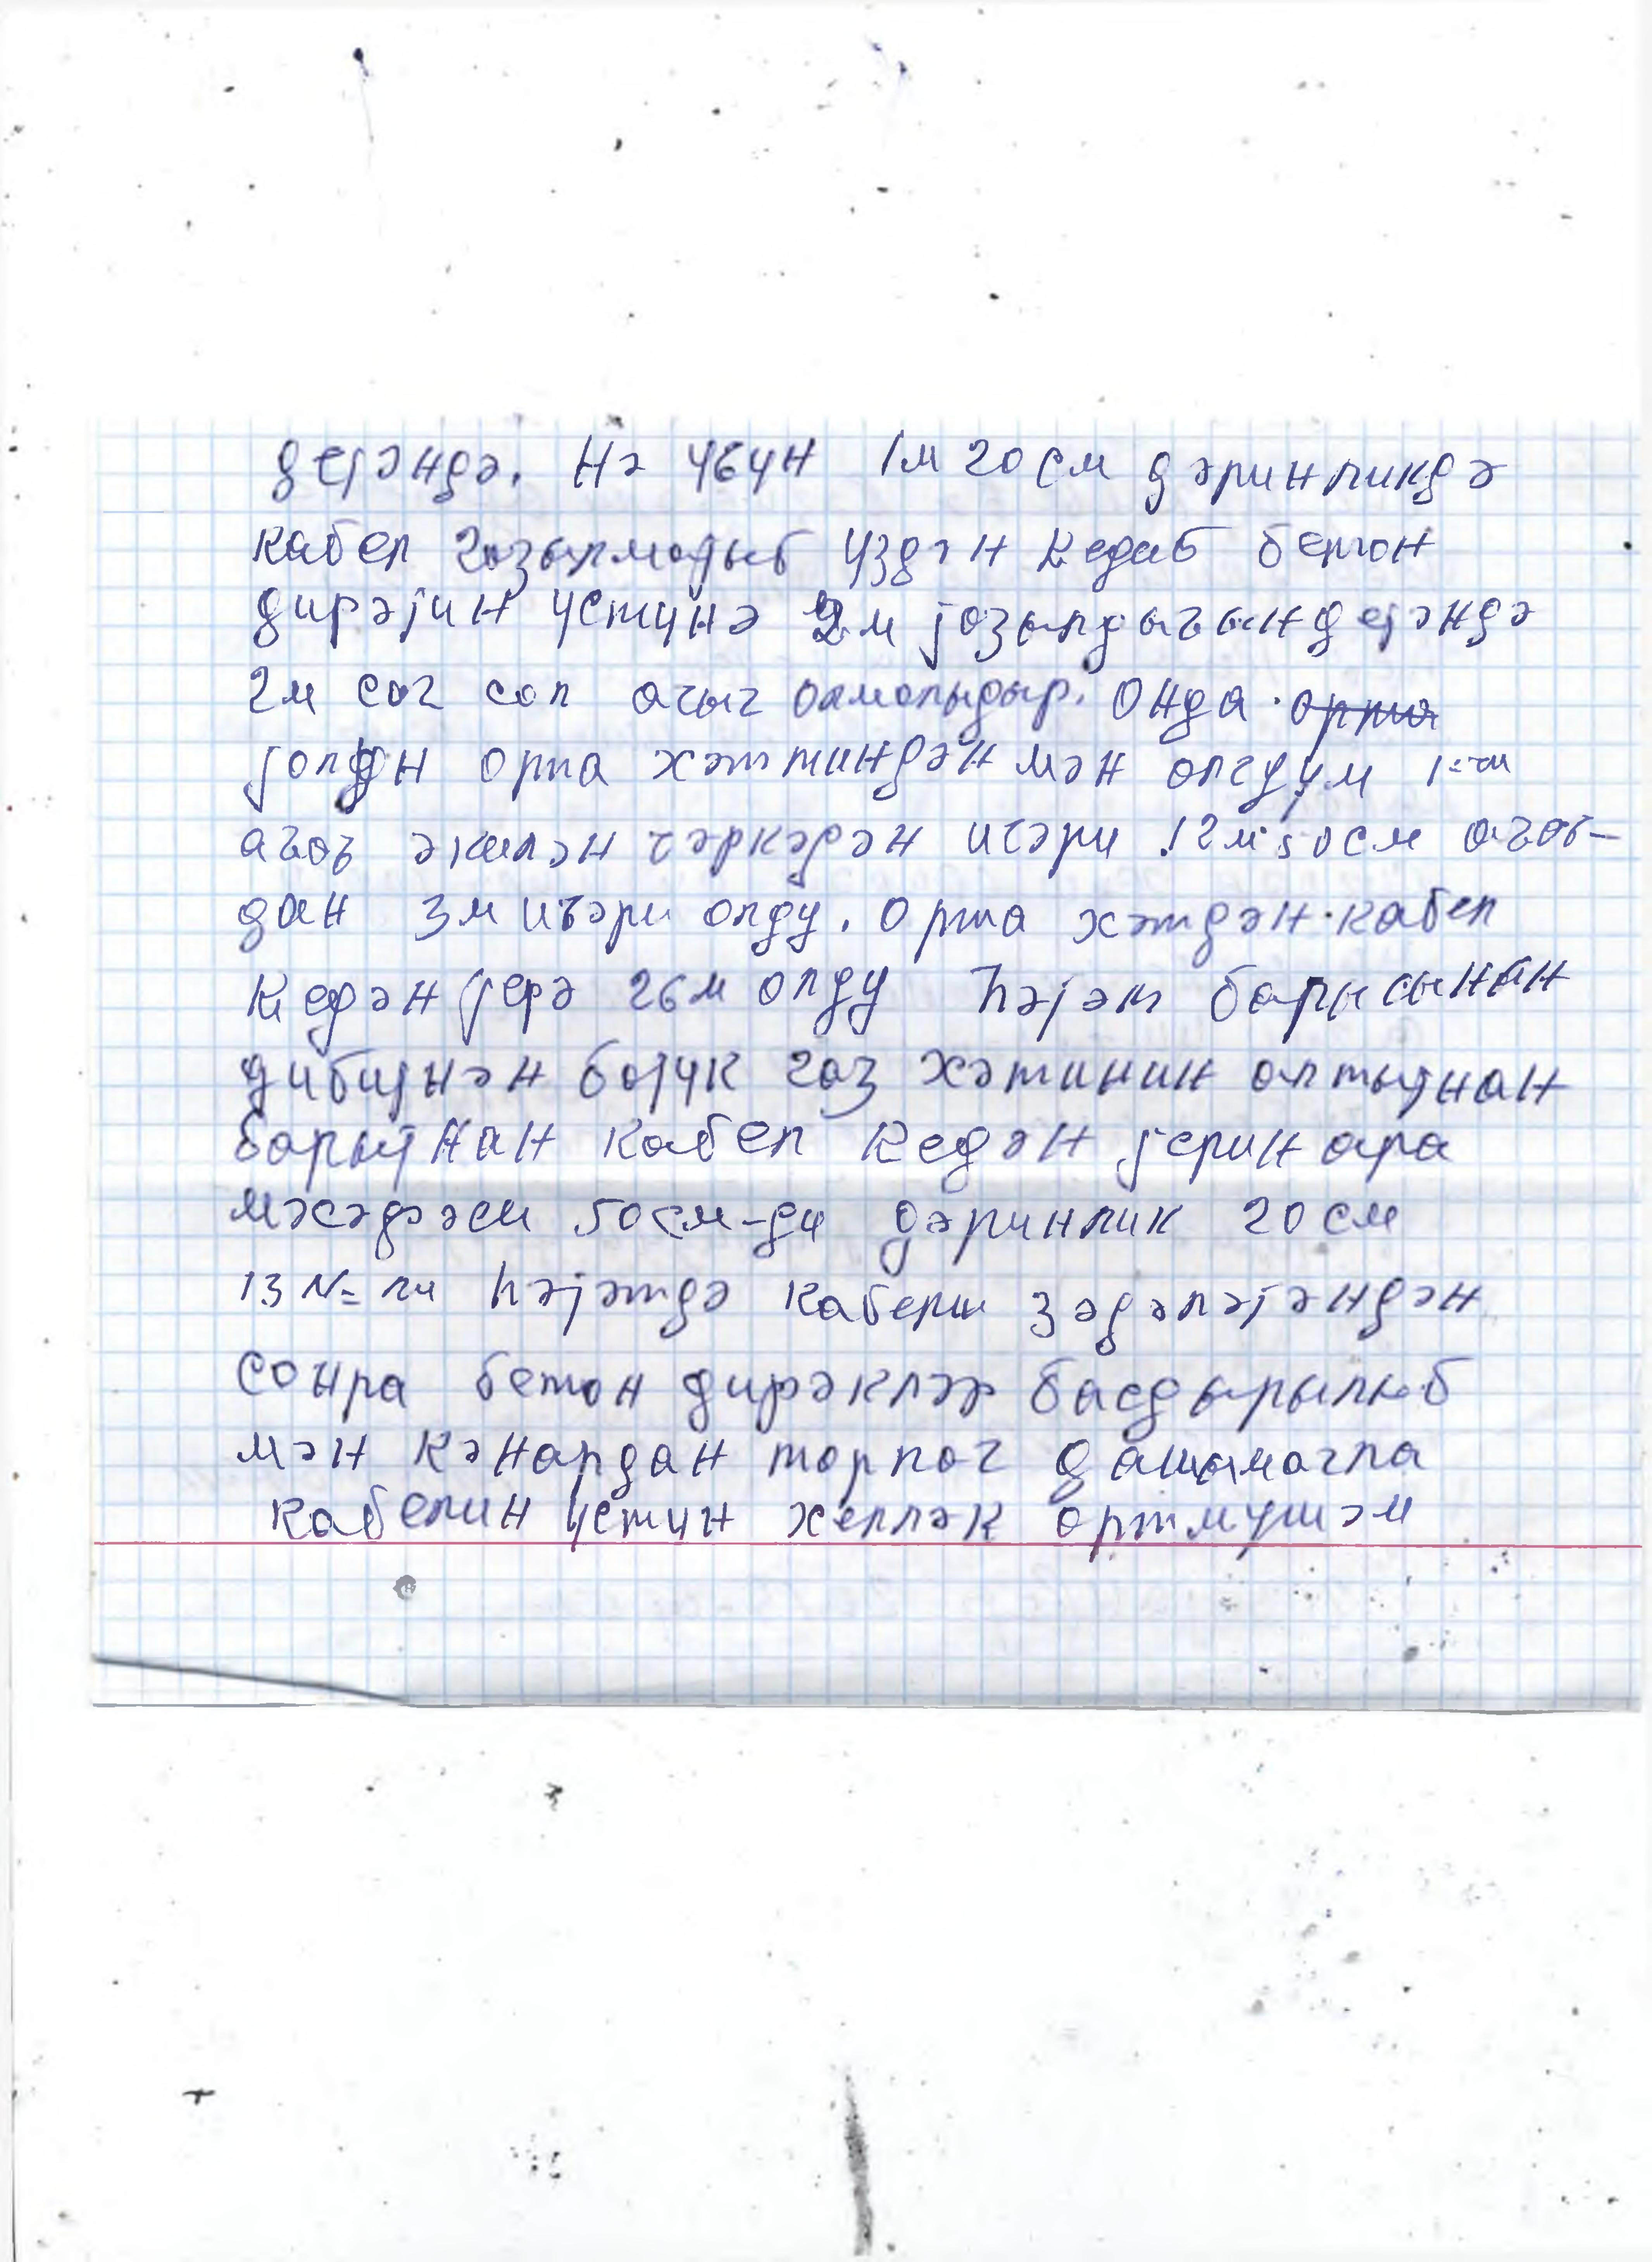 дејәндә. Нә үчүн 1м 20см дәринликдә
кабел газылмајыб үздән кедиб бетон
дирәјин үстүнә 2м јазылдығын дејәндә
2м сағ сол ачыг олмалыдыр. Онда
јолун орта хәттиндән мән олчдүм 1-чи
ағач әкилән чәркәдән ичәри 12м 50см ағаҹ-
дан 3м ичәри олду. Орта хәтдән кабел
кедән јерә 26м олду һәјәт барысынан
дибијнән бөјүк газ хәтинин алтыјнан
барыјнан кабел кедән јерин ара
мәсафәси 50см-ди дәринлик 20см
13 №-ли һәјәтдә кабели зәдәләјәндән
сонра бетон дирәкләр басдырылыб
мән кәнардан торпаг дашымагла
кабелин үстүн хејләк өртмүшәм